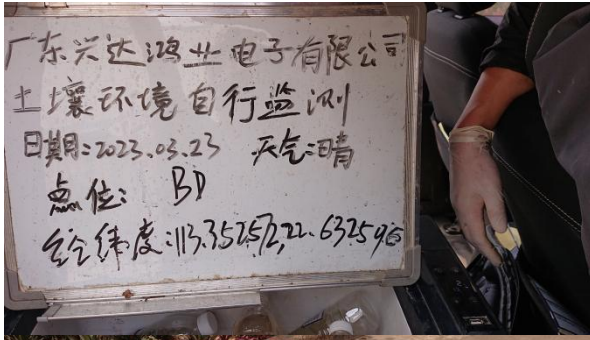 广东兴达鸿业电子有限公司
土壤环境自行监测
日期:2023.03.23 天气:晴
点位: BD
经纬度:113.352572,22.632596